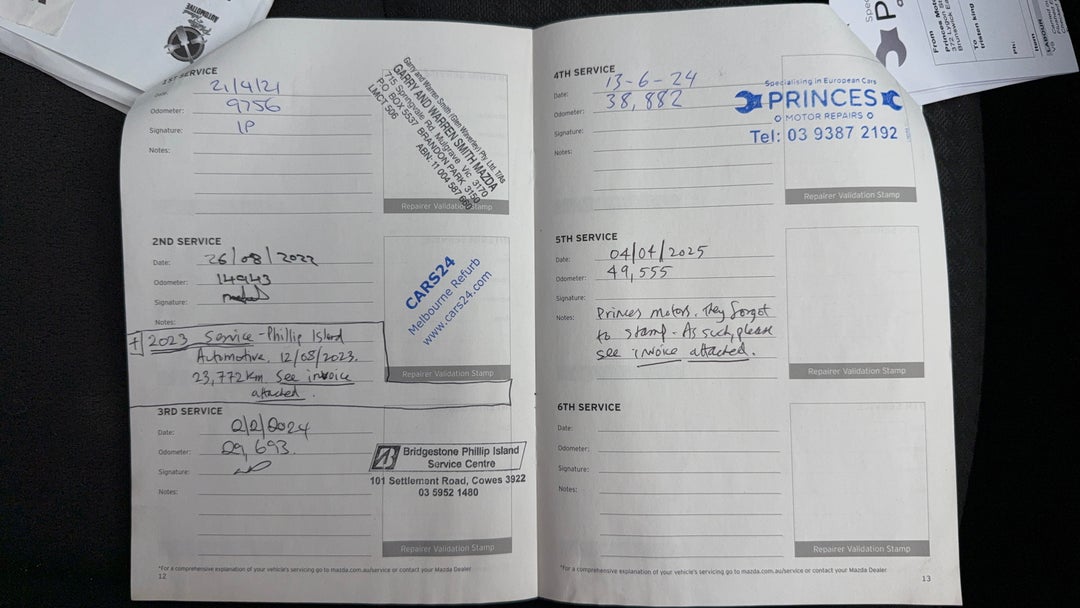 AUTOMOTIVE
1ST SERVICE
Date: 21/4/21
Odometer: 9756
Signature: IP
Notes:
Garry and Warren Smith (Glen Waverley) Pty Ltd T/As
GARRY AND WARREN SMITH MAZDA
715 Springvale Rd, Mulgrave Vic 3170
P.O BOX 5537 BRANDON PARK 3150
LMCT 506 ABN: 11 004 587 660
Repairer Validation Stamp
2ND SERVICE
Date: 26/08/2022
Odometer: 14943
Signature:
Notes:
CARS24
Melbourne Refurb
www.cars24.com
Repairer Validation Stamp
+ 2023 Service - Phillip Island
Automotive. 12/05/2023.
23,772km see invoice
attached.
3RD SERVICE
Date: 2/2/2024
Odometer: 29,693.
Signature:
Notes:
Bridgestone Phillip Island
Service Centre
101 Settlement Road, Cowes 3922
03 5952 1480
Repairer Validation Stamp
*For a comprehensive explanation of your vehicle's servicing go to mazda.com.au/service or contact your Mazda Dealer
12
4TH SERVICE
Date: 13-6-24
Odometer: 38,882
Signature:
Notes:
Specialising in European Cars
PRINCES
MOTOR REPAIRS
Tel: 03 9387 2192
Repairer Validation Stamp
5TH SERVICE
Date: 04/04/2025
Odometer: 49,555
Signature:
Notes: Princes Motors. They forgot
to stamp. As such, please
see invoice attached.
Repairer Validation Stamp
6TH SERVICE
Date:
Odometer:
Signature:
Notes:
Repairer Validation Stamp
*For a comprehensive explanation of your vehicle's servicing go to mazda.com.au/service or contact your Mazda Dealer
13
From
Princes Mot
372 Lygon
Brunswick
To
tristen king
Ph:
Item
LABOUR